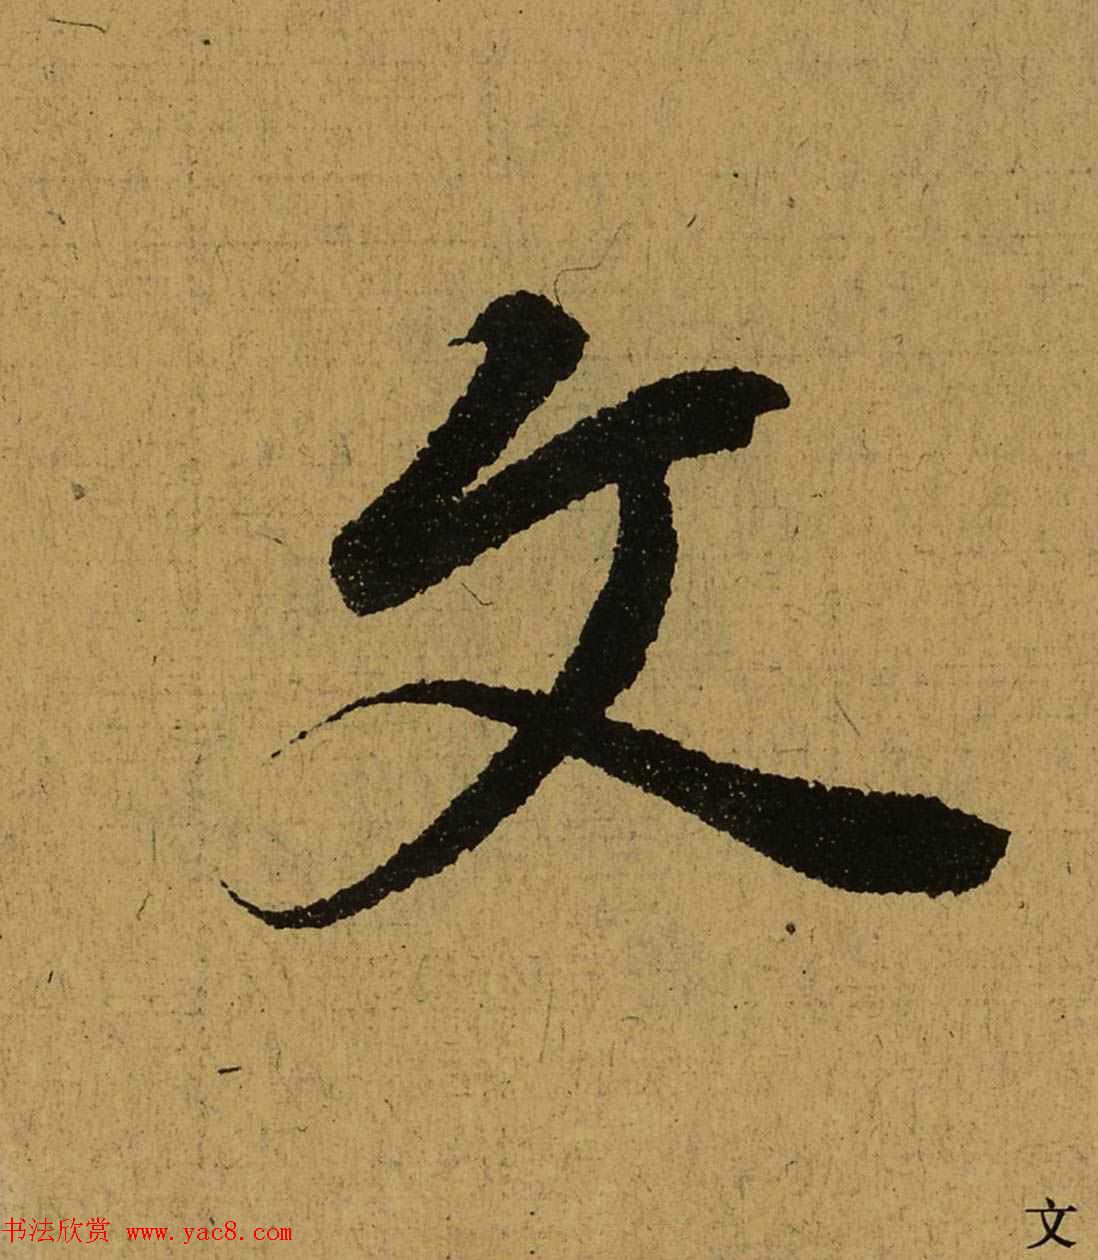 文
书法欣赏 www.yac8.com
文